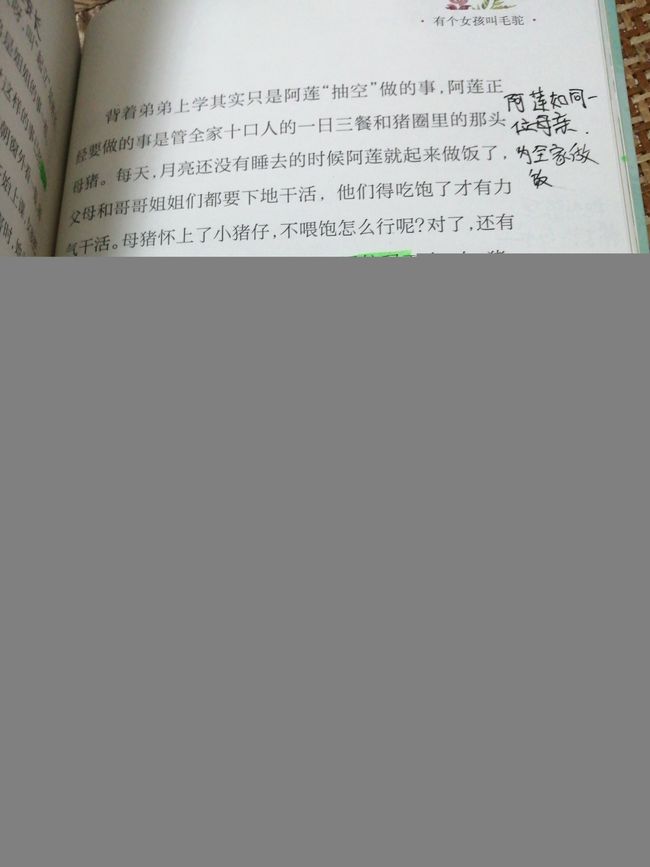 · 有个女孩叫毛驼 ·
背着弟弟上学其实只是阿莲“抽空”做的事，阿莲正
经要做的事是管全家十口人的一日三餐和猪圈里的那头
母猪。每天，月亮还没有睡去的时候阿莲就起来做饭了，
父母和哥哥姐姐们都要下地干活，他们得吃饱了才有力
气干活。母猪怀上了小猪仔，不喂饱怎么行呢？对了，还有
阿莲如同一
位母亲.
为全家做
饭